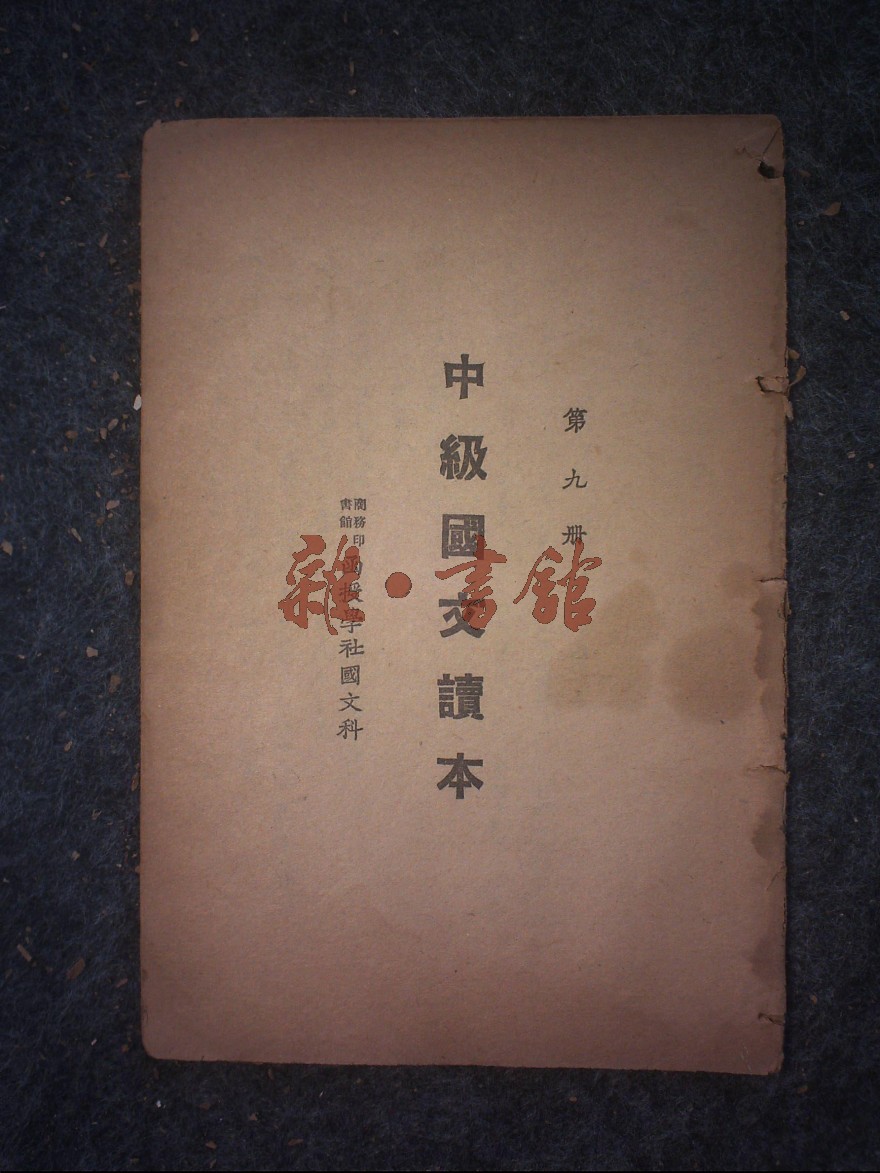 第九册
中級國文讀本
商務印書館函授學社國文科
雜·書館